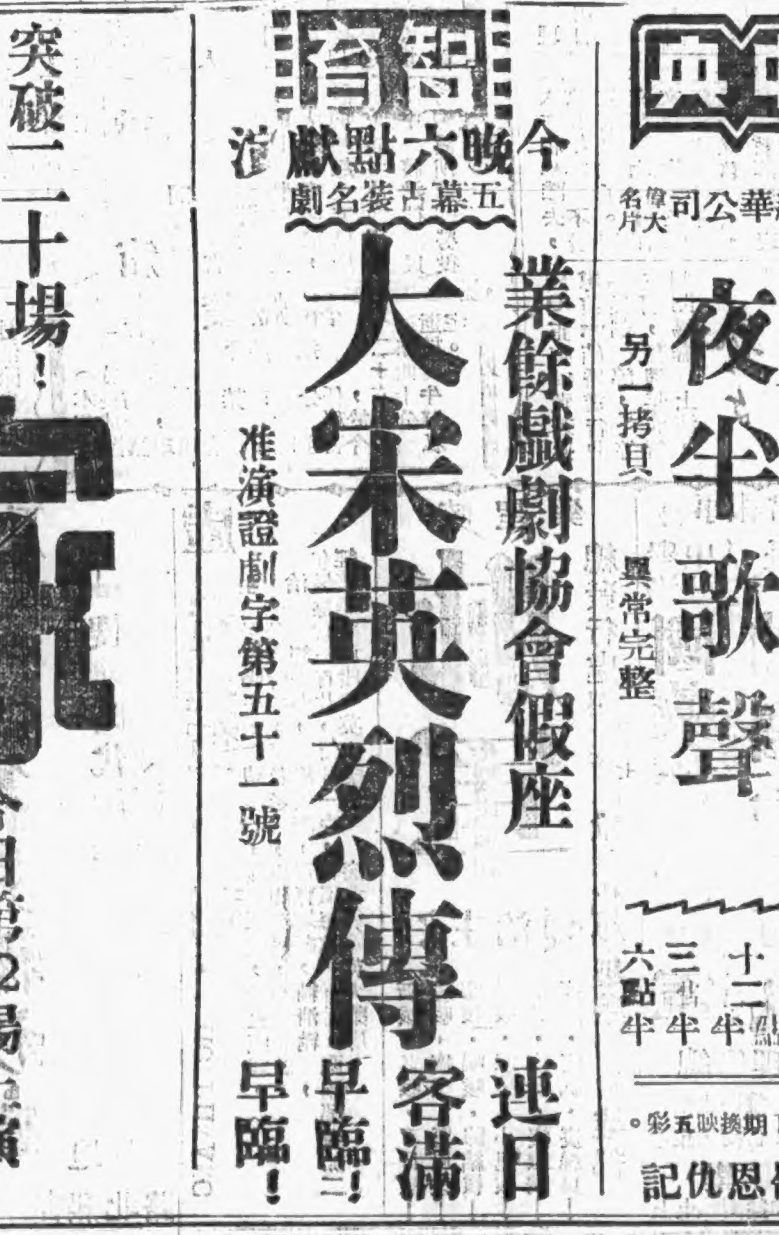 典
華公司
偉大
名片
夜半歌聲
另一拷貝
異常完整
十二點半
三點半
六點半
期換映五彩。
恩仇記
智育
今晚六點獻演
五幕古裝名劇
業餘戲劇協會假座
大宋英烈傳
准演證劇字第五十一號
連日
客滿
早臨！
早臨！
突破二十場！